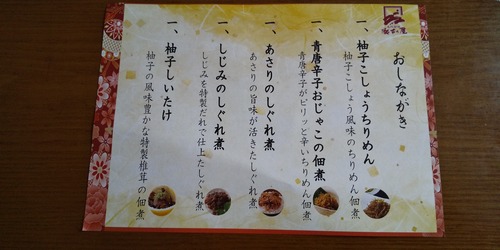 おしながき
一、柚子こしょうちりめん
柚子こしょう風味のちりめん佃煮
一、青唐辛子おじゃこの佃煮
青唐辛子がピリッと辛いちりめん佃煮
一、あさりのしぐれ煮
あさりの旨味が活きたしぐれ煮
一、しじみのしぐれ煮
しじみを特製だれで仕上たしぐれ煮
一、柚子しいたけ
柚子の風味豊かな特製椎茸の佃煮